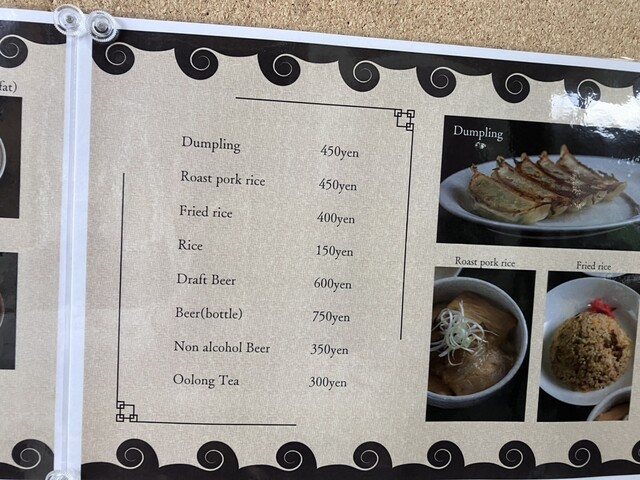 fat)
Dumpling 450yen
Roast pork rice 450yen
Fried rice 400yen
Rice 150yen
Draft Beer 600yen
Beer(bottle) 750yen
Non alcohol Beer 350yen
Oolong Tea 300yen
Dumpling
Roast pork rice
Fried rice